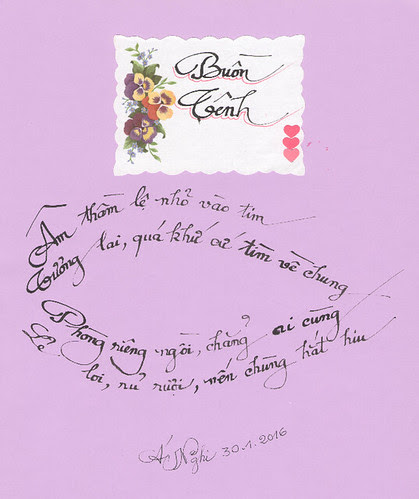 Buồn
Tênh
Âm thầm lệ nhỏ vào tim
Tương lai, quá khứ cứ tìm về chung
Phòng riêng ngồi, chẳng ai cùng
Lẻ loi, rũ rượi, nến chừng hắt hiu
Á Nghi 30.1.2016